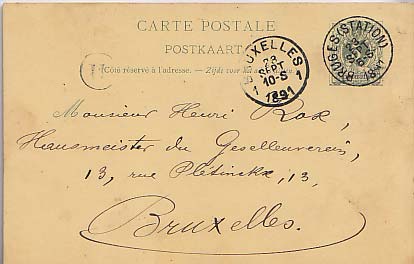 CARTE POSTALE
POSTKAART
(Côté réservé à l'adresse. — Zijde voor
BRUXELLES 1
23
SEPT
10-S
1891
BRUGES (STATION)
1891
H
Monsieur Henri Rox,
Hausmeister du Gesellenverein,
13, rue Pletinckx, 13,
Bruxelles.